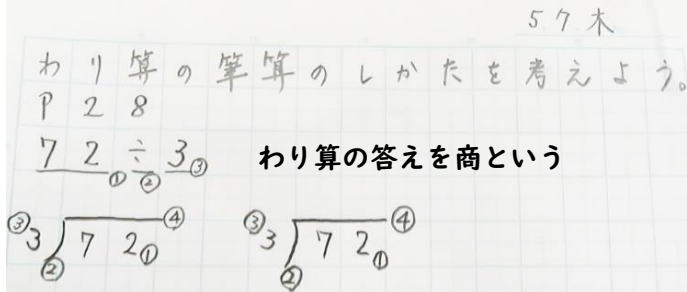 5 7 木
わり算の筆算のしかたを考えよう。
P 2 8
7 2 ① ÷ ② 3 ③ わり算の答えを商という
③ 3 ② 7 2 ① ④ ③ 3 ② 7 2 ① ④